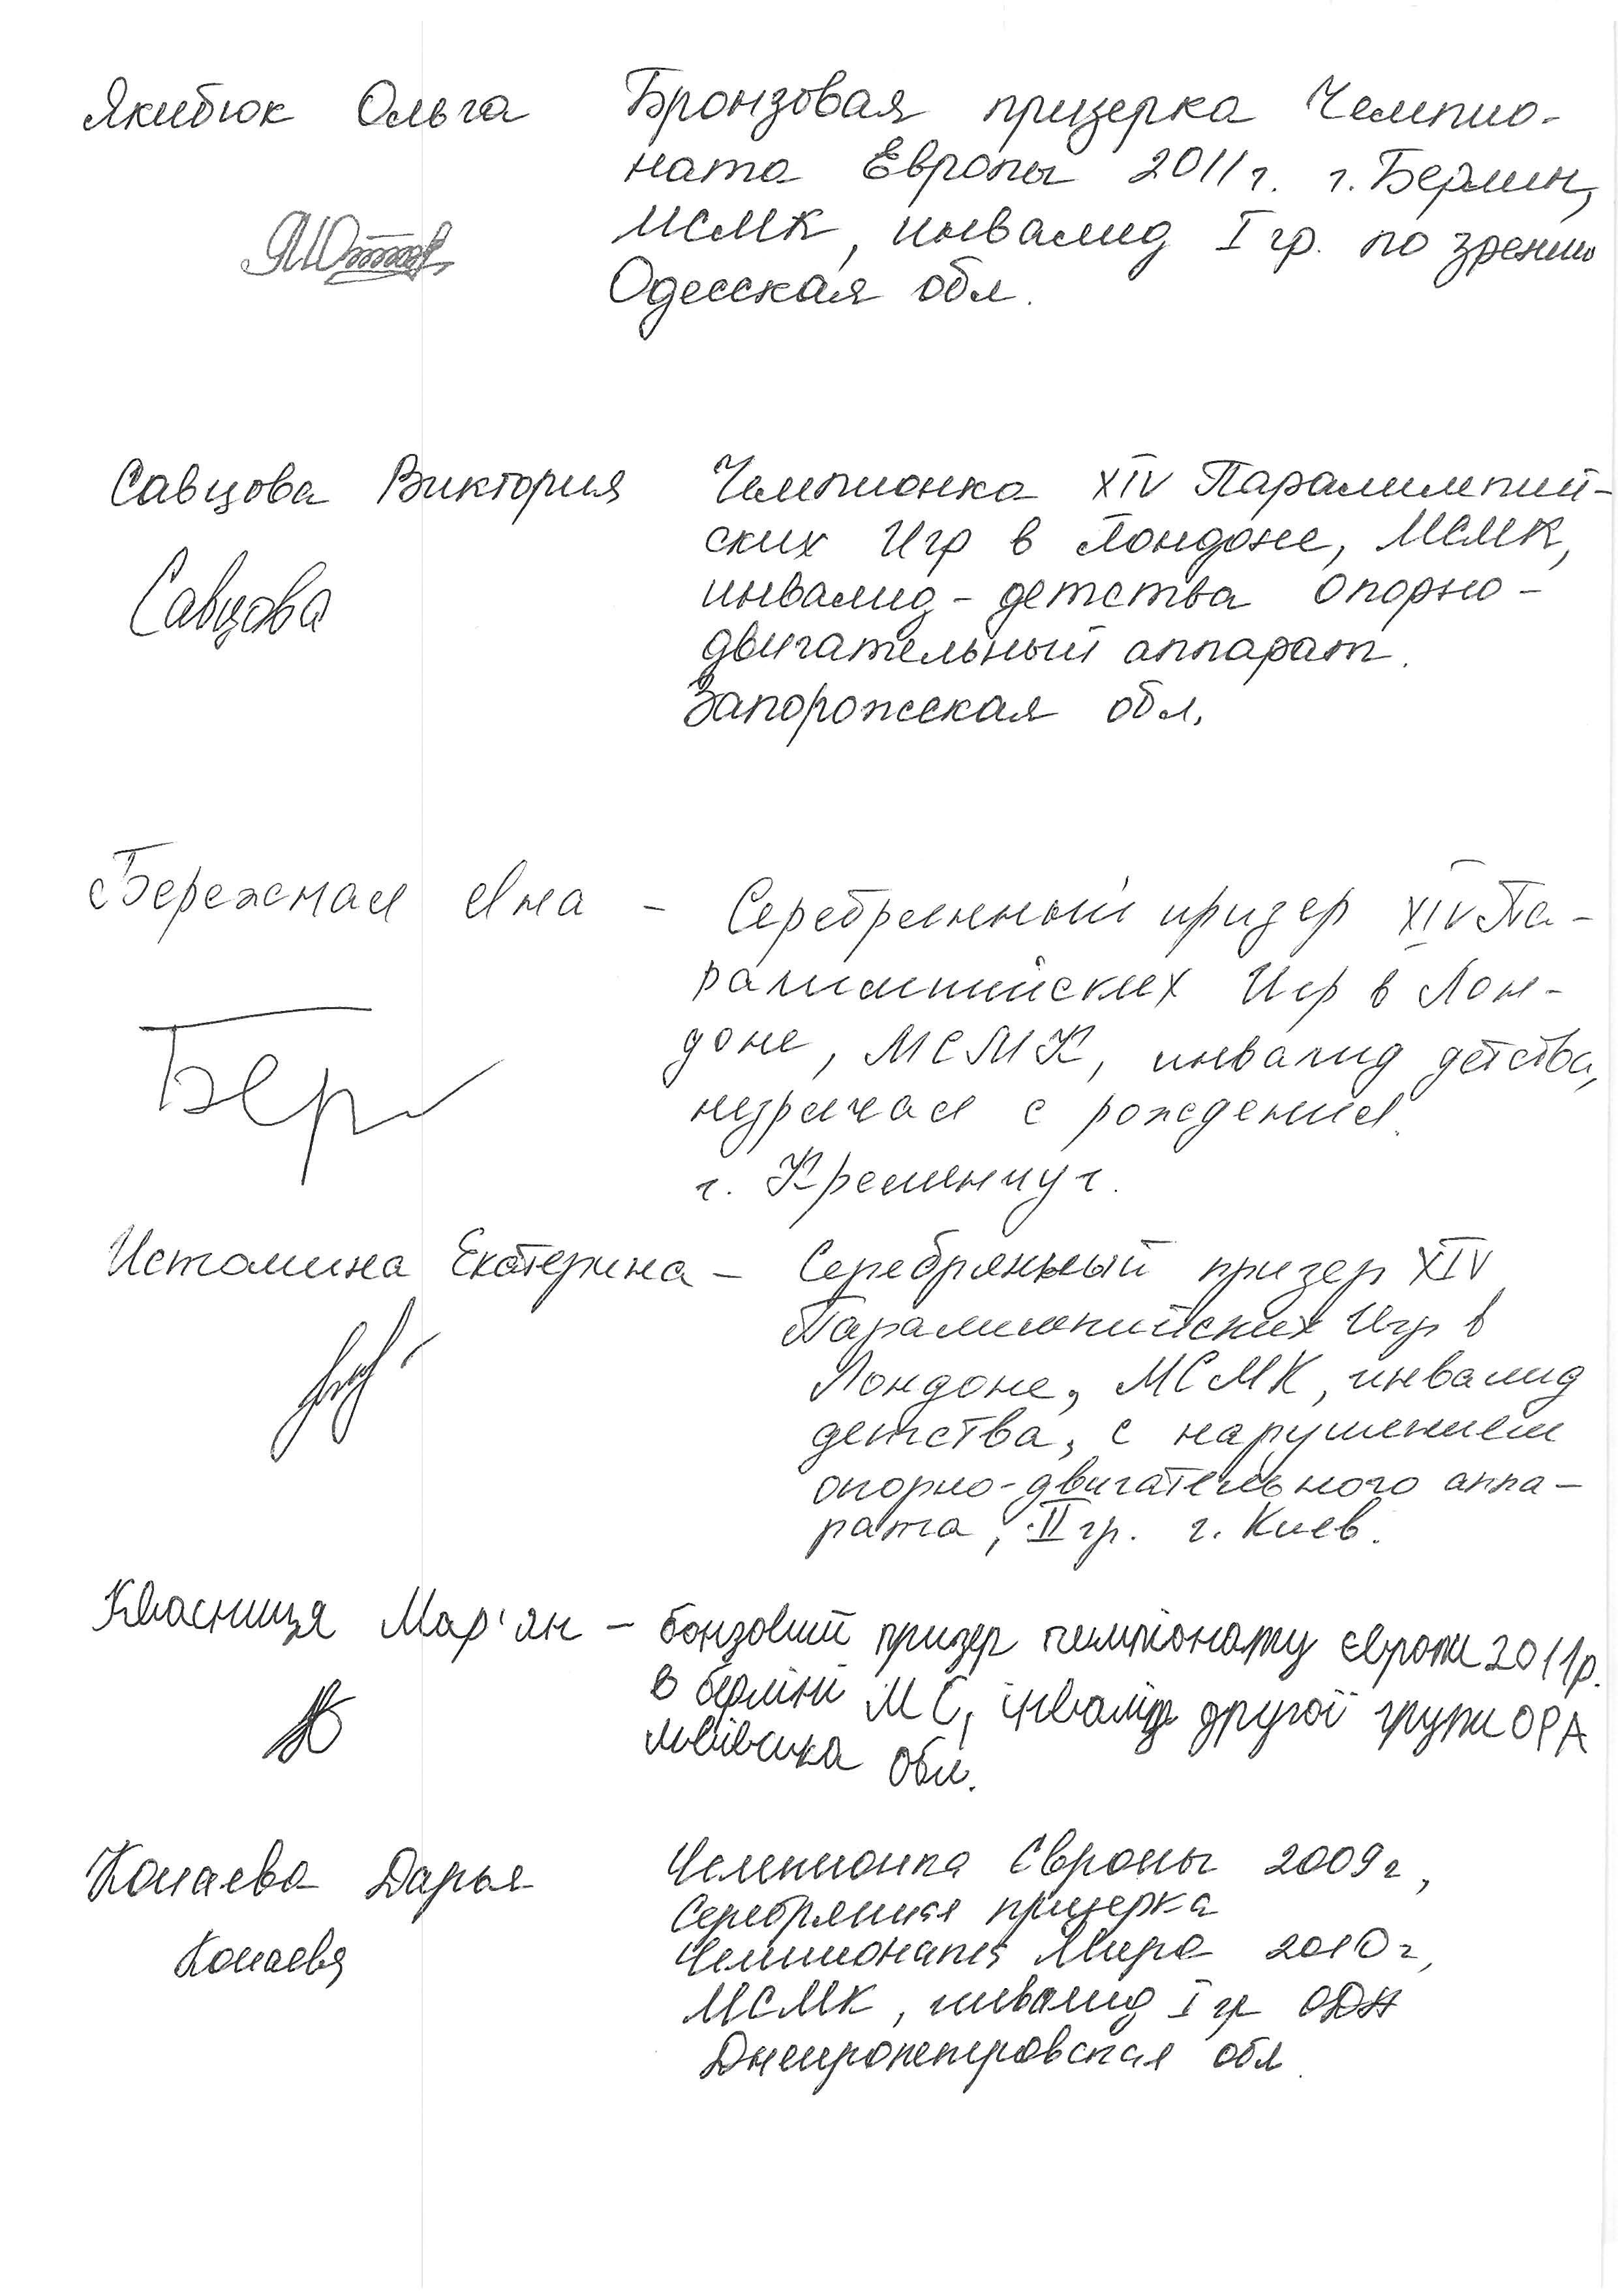 Якибюк Ольга Бронзовая призерка Чемпио-
ната Европы 2011г. г. Берлин,
МСМК, инвалид I гр. по зрению
Одесская обл.
Савцова Виктория Чемпионка XIV Паралимпий-
ских Игр в Лондоне, МСМК,
Савцова
инвалид-детства опорно-
двигательный аппарат.
Запорожская обл.
Бережная Яна - Серебрянный призер XIV Па-
ралимпийских Игр в Лон-
доне, МСМК, инвалид детства,
Бер
незрячая с рождения.
г. Кременчуг.
Истомина Екатерина - Серебрянный призер XIV
Паралимпийских Игр в
Лондоне, МСМК, инвалид
детства, с нарушением
опорно-двигательного аппа-
рата, II гр. г. Киев.
Квасниця Мар'ян - бонзовий призер чемпіонату Європи 2011р.
в берліні МС, інвалід другої групи ОРА
львівська обл.
Копаева Дарья Чемпионка Европы 2009г,
серебрянная призерка
Копаева
Чемпионата Мира 2010г,
МСМК, инвалид I гр ОДА
Днепропетровская обл.